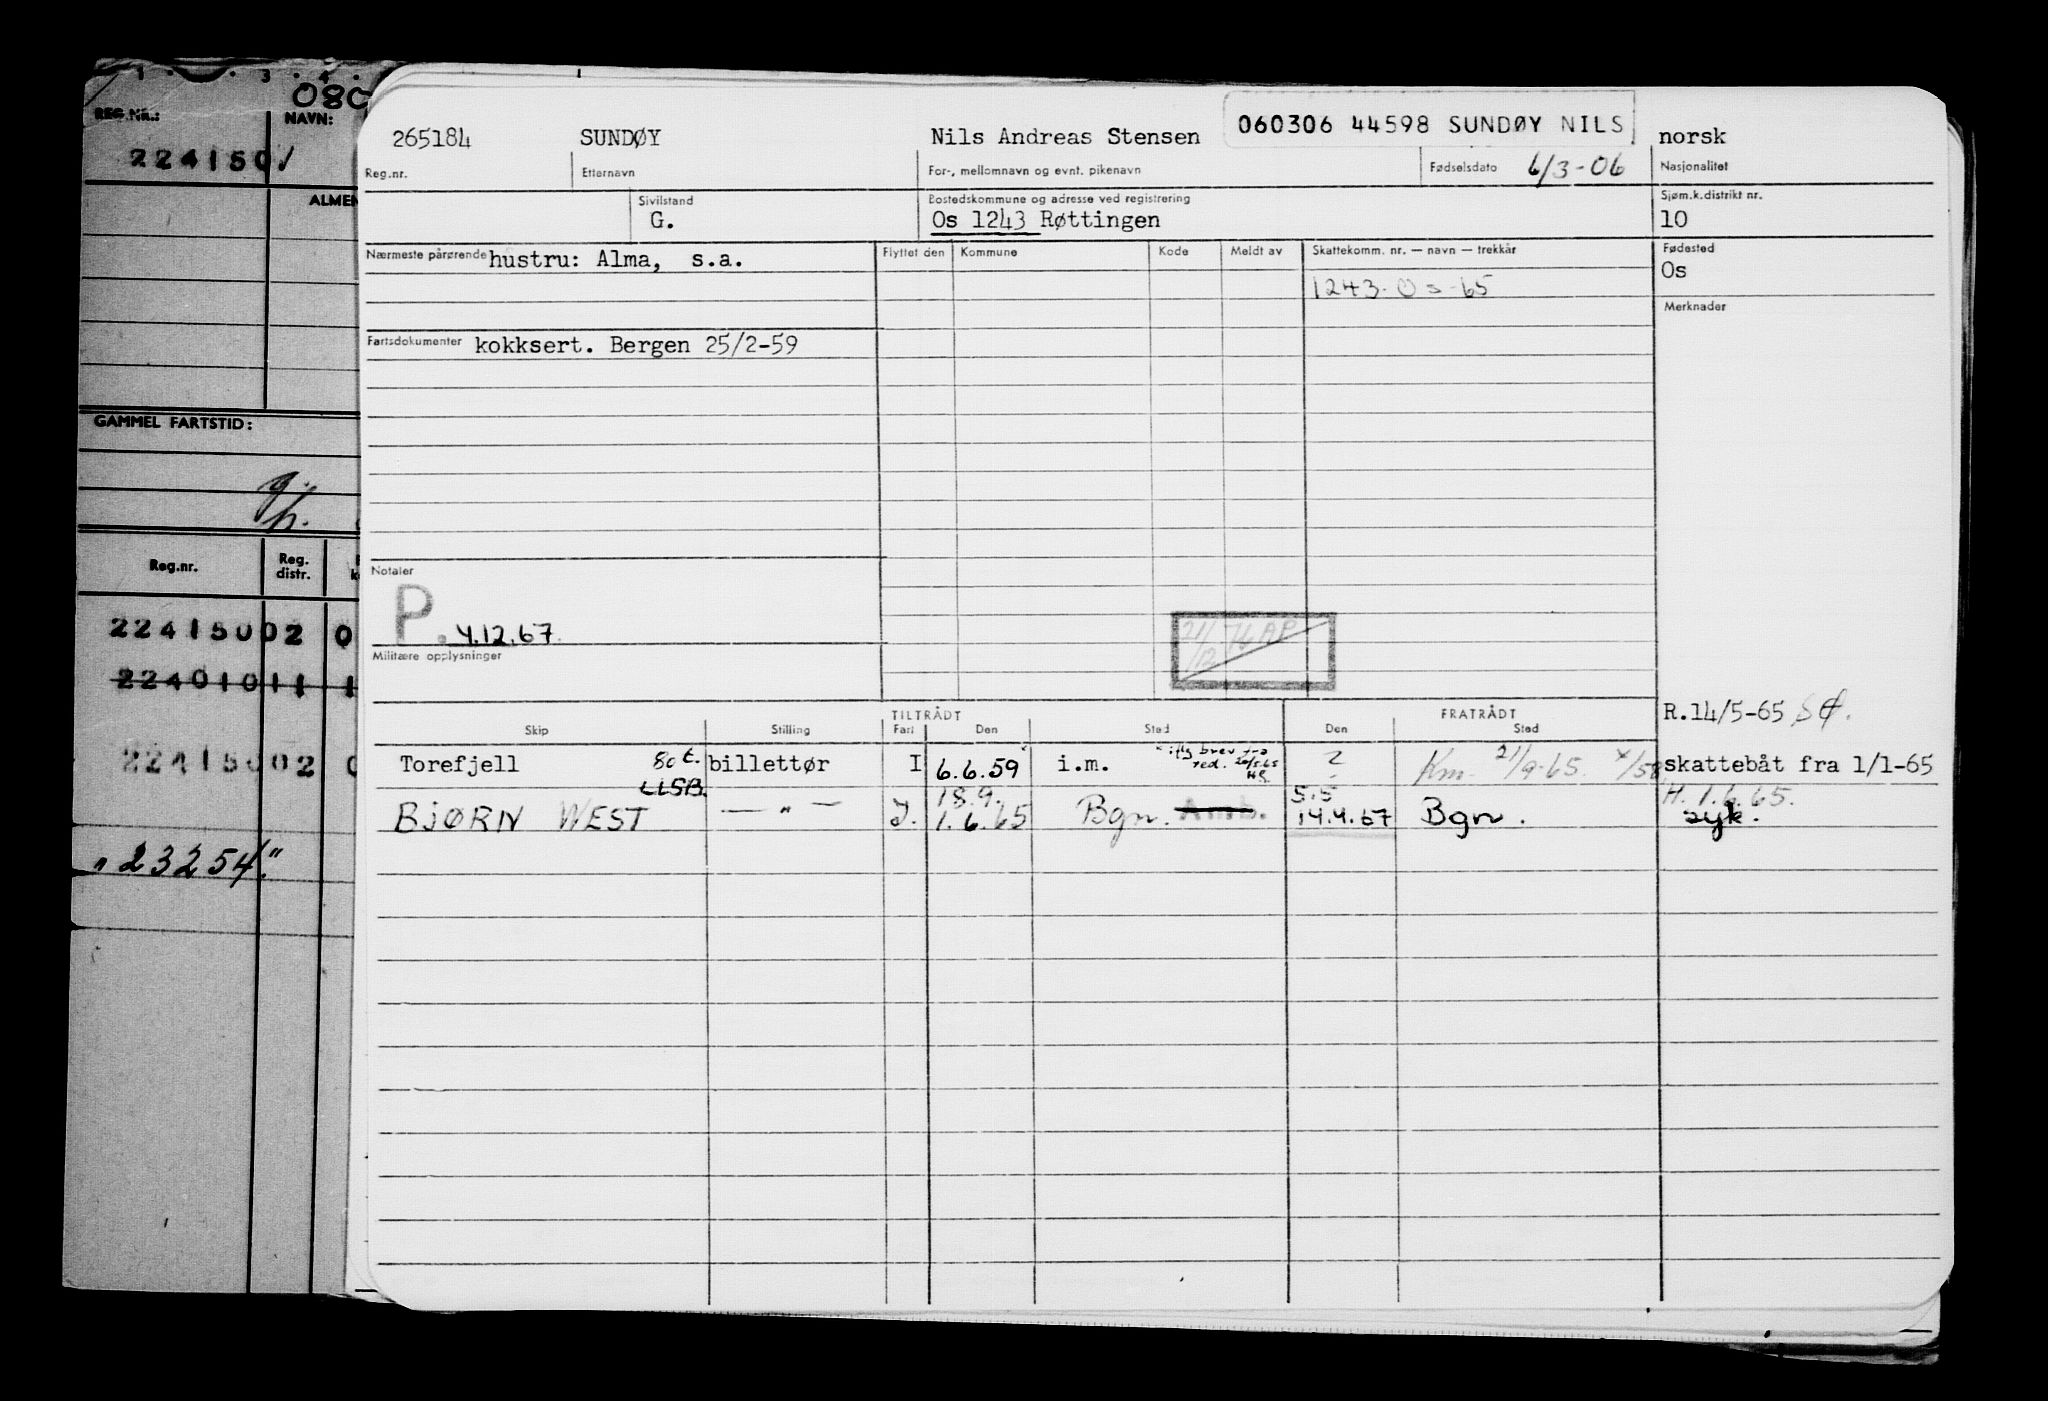 1 . . 3 . 4 .
080
REG.NR.:
NAVN:
224150
ALMEN
GAMMEL FARTSTID:
Reg.nr.
Reg. distr.
22415002 0
22401011 1
22415002 0
"23254."
060306 44598 SUNDØY NILS
265184 SUNDØY Nils Andreas Stensen 6/3-06 norsk
Reg.nr. Etternavn For-, mellomnavn og evnt. pikenavn Fødselsdato Nasjonalitet
Sivilstand Bostedskommune og adresse ved registrering Sjøm.k.distrikt nr.
G. Os 1243 Røttingen 10
Nærmeste pårørende hustru: Alma, s.a. Flyttet den Kommune Kode Meldt av Skattekomm. nr. — navn — trekkår Fødested
Os
1243-Os-65
Merknader
Fartsdokumenter kokksert. Bergen 25/2-59
Notater
P. 4.12.67.
21/12 74 AP
Militære opplysninger
R.14/5-65
TILTRÅDT FRATRÅDT
Skip Stilling Fart Den Sted Den Sted
iflg brev fra
red. 20/5.65
HS.
Torefjell 80 t. billettør I 6.6.59 i.m. ? Km. 21/9-65. skattebåt fra 1/1-65
LLSB.
18.9. 5.5 H. 1.6.65.
BJØRN WEST — " — J. 1.6.65 Bgn. Amb. 14.4.67 Bgn. syk.